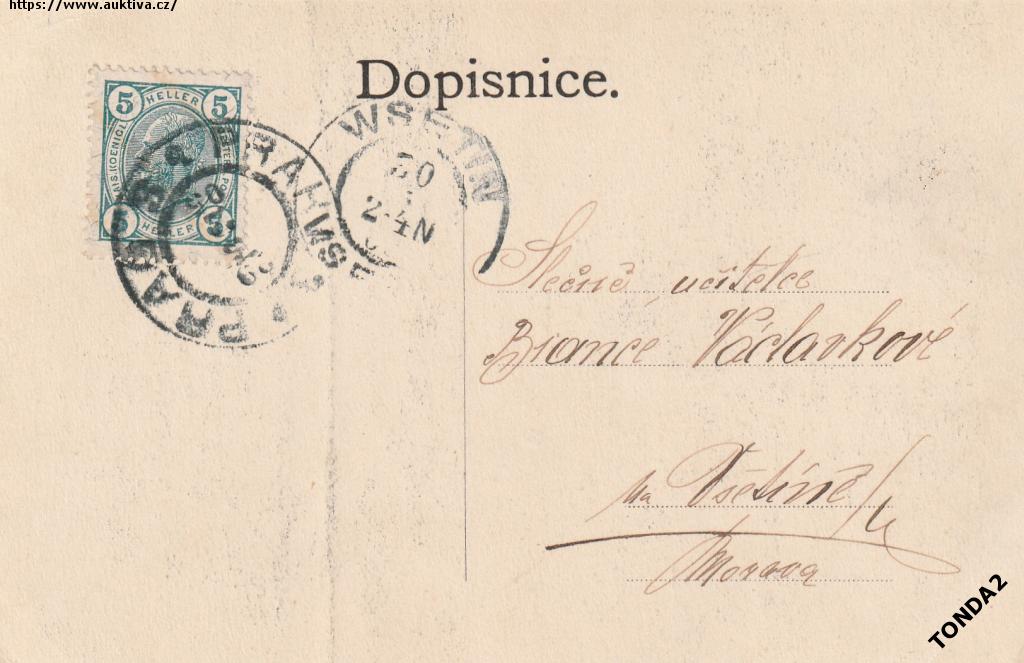 https://www.auktiva.cz/
Dopisnice.
5 HELLER 5
5 HELLER 5
WSETIN
20
2-4N
PRAG
PRAHA
Slečně učitelce
Biance Václavkové
na Vsetíně
Morava
TONDA2